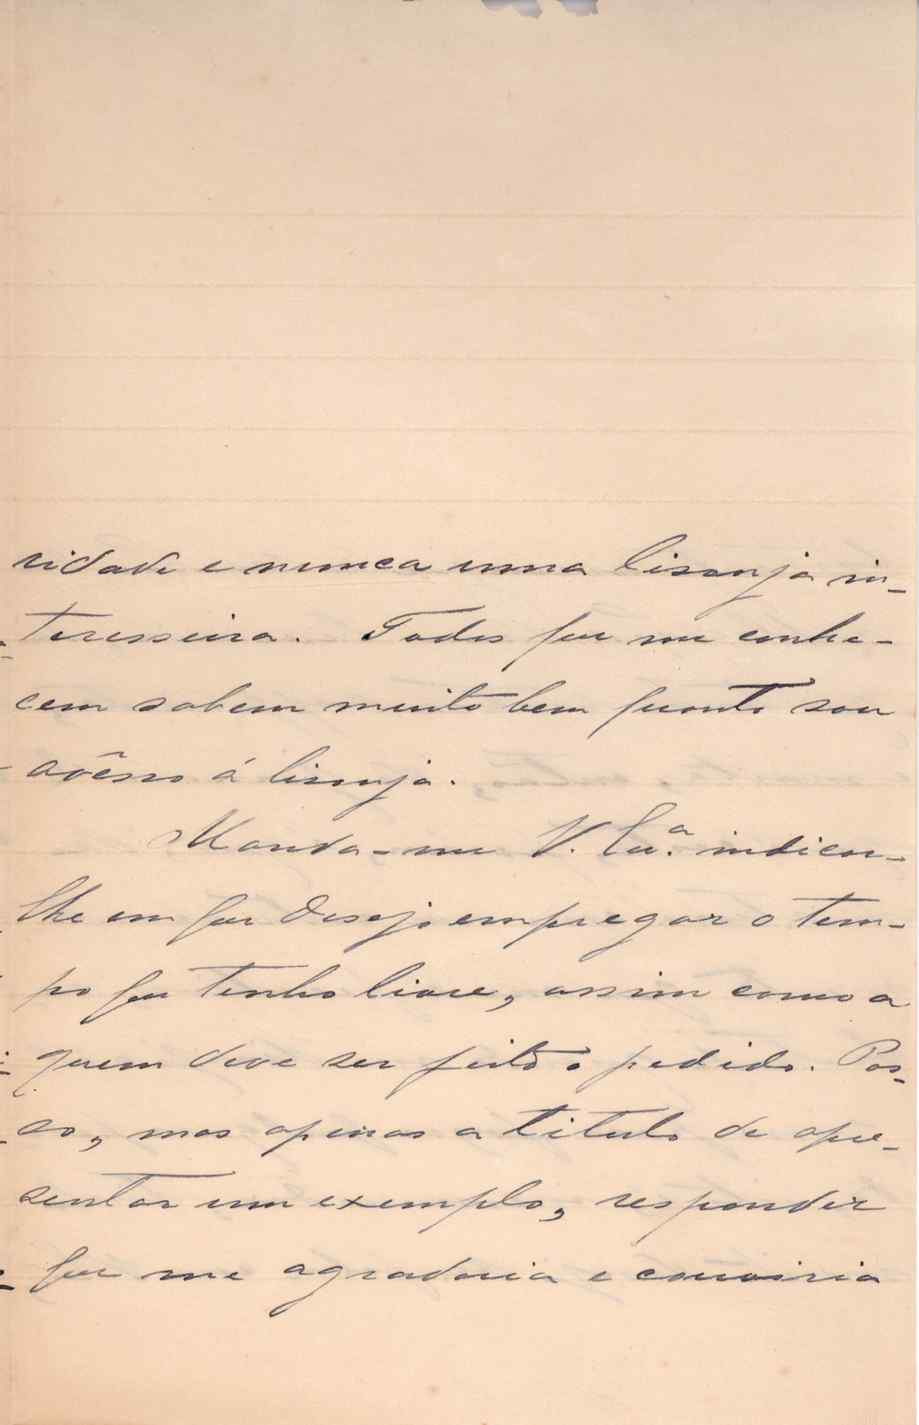 ridade e nunca uma lisonja in-
teresseira. Todos que me conhe-
cem sabem muito bem quanto sou
avêsso á lisonja.
Manda-me V. Exª. indicar-
lhe em que desejo empregar o tem-
po que tenho livre, assim como a
quem deve ser feito o pedido. Pos-
so, mas apenas a titulo de apre-
sentar um exemplo, responder
que me agradaria e conviria